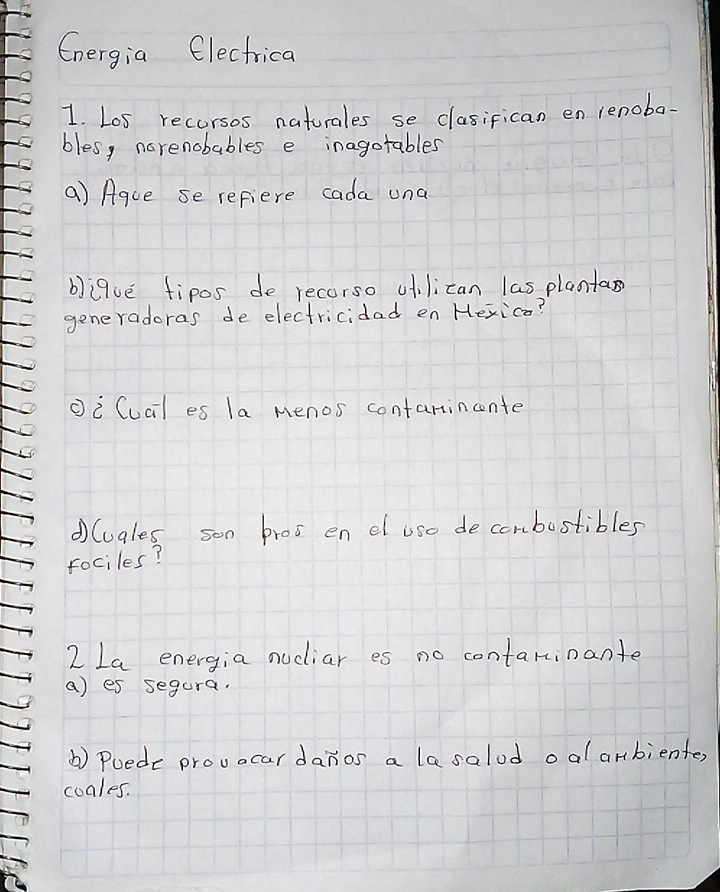 Energia Electrica
1. Los recursos naturales se clasifican en renoba-
bles, norenobables e inagotables
a) Aque se refiere cada una
b) ¿Qué tipos de recurso utilizan las plantas
generadoras de electricidad en México?
c) ¿Cuál es la menos contaminante
d) Cuales son pros en el uso de combustibles
fociles?
2 La energia nucliar es no contaminante
a) es segura.
b) Puede provacar daños a la salud o al ambiente,
cuales.